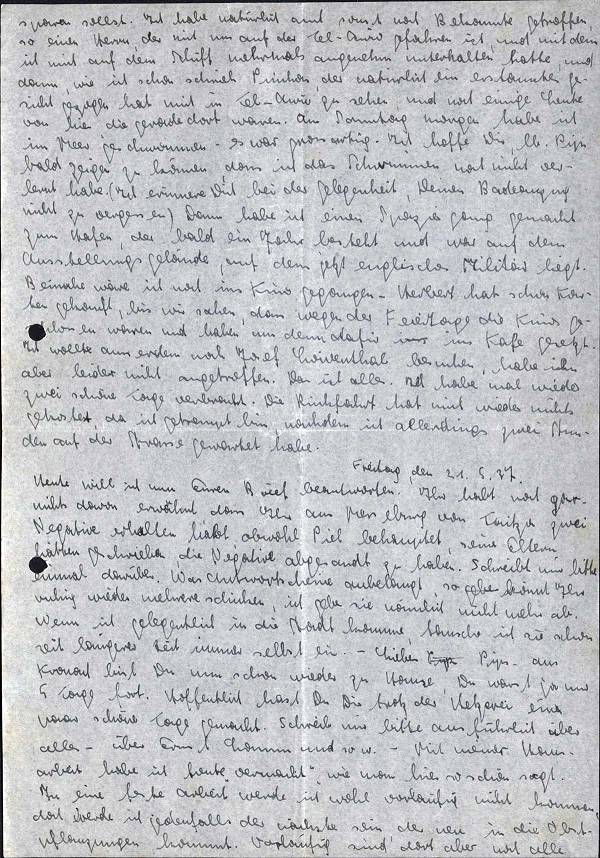 sparen sollst. Ich habe natürlich auch sonst noch Bekannte getroffen,
so einen Herrn, der mit uns auf der Tel-Aviv gefahren ist, und mit dem
ich mich auf dem Schiff mehrmals angenehm unterhalten hatte, und
dann, wie ich schon schrieb Pinchas, der natürlich ein erstauntes Ge-
sicht gezogen hat mich in Tel-Aviv zu sehen, und noch einige Leute
von hier die gerade dort waren. Am Sonntag morgen habe ich
im Meer geschwommen - es war grossartig. Ich hoffe Dir, lb. Pips
bald zeigen zu können, dass ich das Schwimmen noch nicht ver-
lernt habe. (Ich erinnere Dich bei der Gelegenheit, Deinen Badeanzug
nicht zu vergessen) Dann habe ich einen Spaziergang gemacht
zum Hafen, der bald ein Jahr besteht und war auf dem
Ausstellungsgelände, auf dem jetzt englisches Militär liegt.
Beinahe wäre ich noch ins Kino gegangen - Herbert hat schon Kar-
ten gekauft, bis wir sahen, dass wegen der Feiertage die Kinos ge-
schlossen waren und haben uns dann dafür ins Kafe gesetzt.
Ich wollte ausserdem noch Josef Löwenthal besuchen, habe ihn
aber leider nicht angetroffen. Das ist alles. Ich habe mal wieder
zwei schöne Tage verbracht. Die Rückfahrt hat mich wieder nichts
gekostet, da ich getrampt bin, nachdem ich allerdings zwei Stun-
den auf der Strasse gewartet habe.
Freitag, den 21.5.37.
Heute will ich nun Euren Brief beantworten. Ihr habt noch gar
nichts davon erwähnt dass Ihr aus Merseburg von zwei
Negative erhalten habt, obwohl behauptet, seine Eltern
hätten geschrieben, die Negative abgesandt zu haben. Schreibt mir bitte
einmal darüber. Was Antwortscheine anbelangt, so könnt Ihr
ruhig wieder mehrere schicken, ich gebe sie nämlich nicht mehr ab.
Wenn ich gelegentlich in die Stadt komme, tausche ich sie schon
seit längerer Zeit immer selbst ein. - Lieber Pips - aus
bist Du nun schon wieder zu Hause, Du warst ja nur
5 Tage fort. Hoffentlich hast Du Dir trotz der Hetzerei ein
paar schöne Tage gemacht. Schreib mir bitte ausführlich über
alles - über und so w. - Mit meiner Haus-
arbeit habe ich heute "vermacht", wie man hier so schön sagt.
In eine feste Arbeit werde ich wohl vorläufig nicht kommen,
dort werde ich jedenfalls der nächste sein der neu in die Obst-
pflanzungen kommt. Vorläufig sind dort aber noch alle